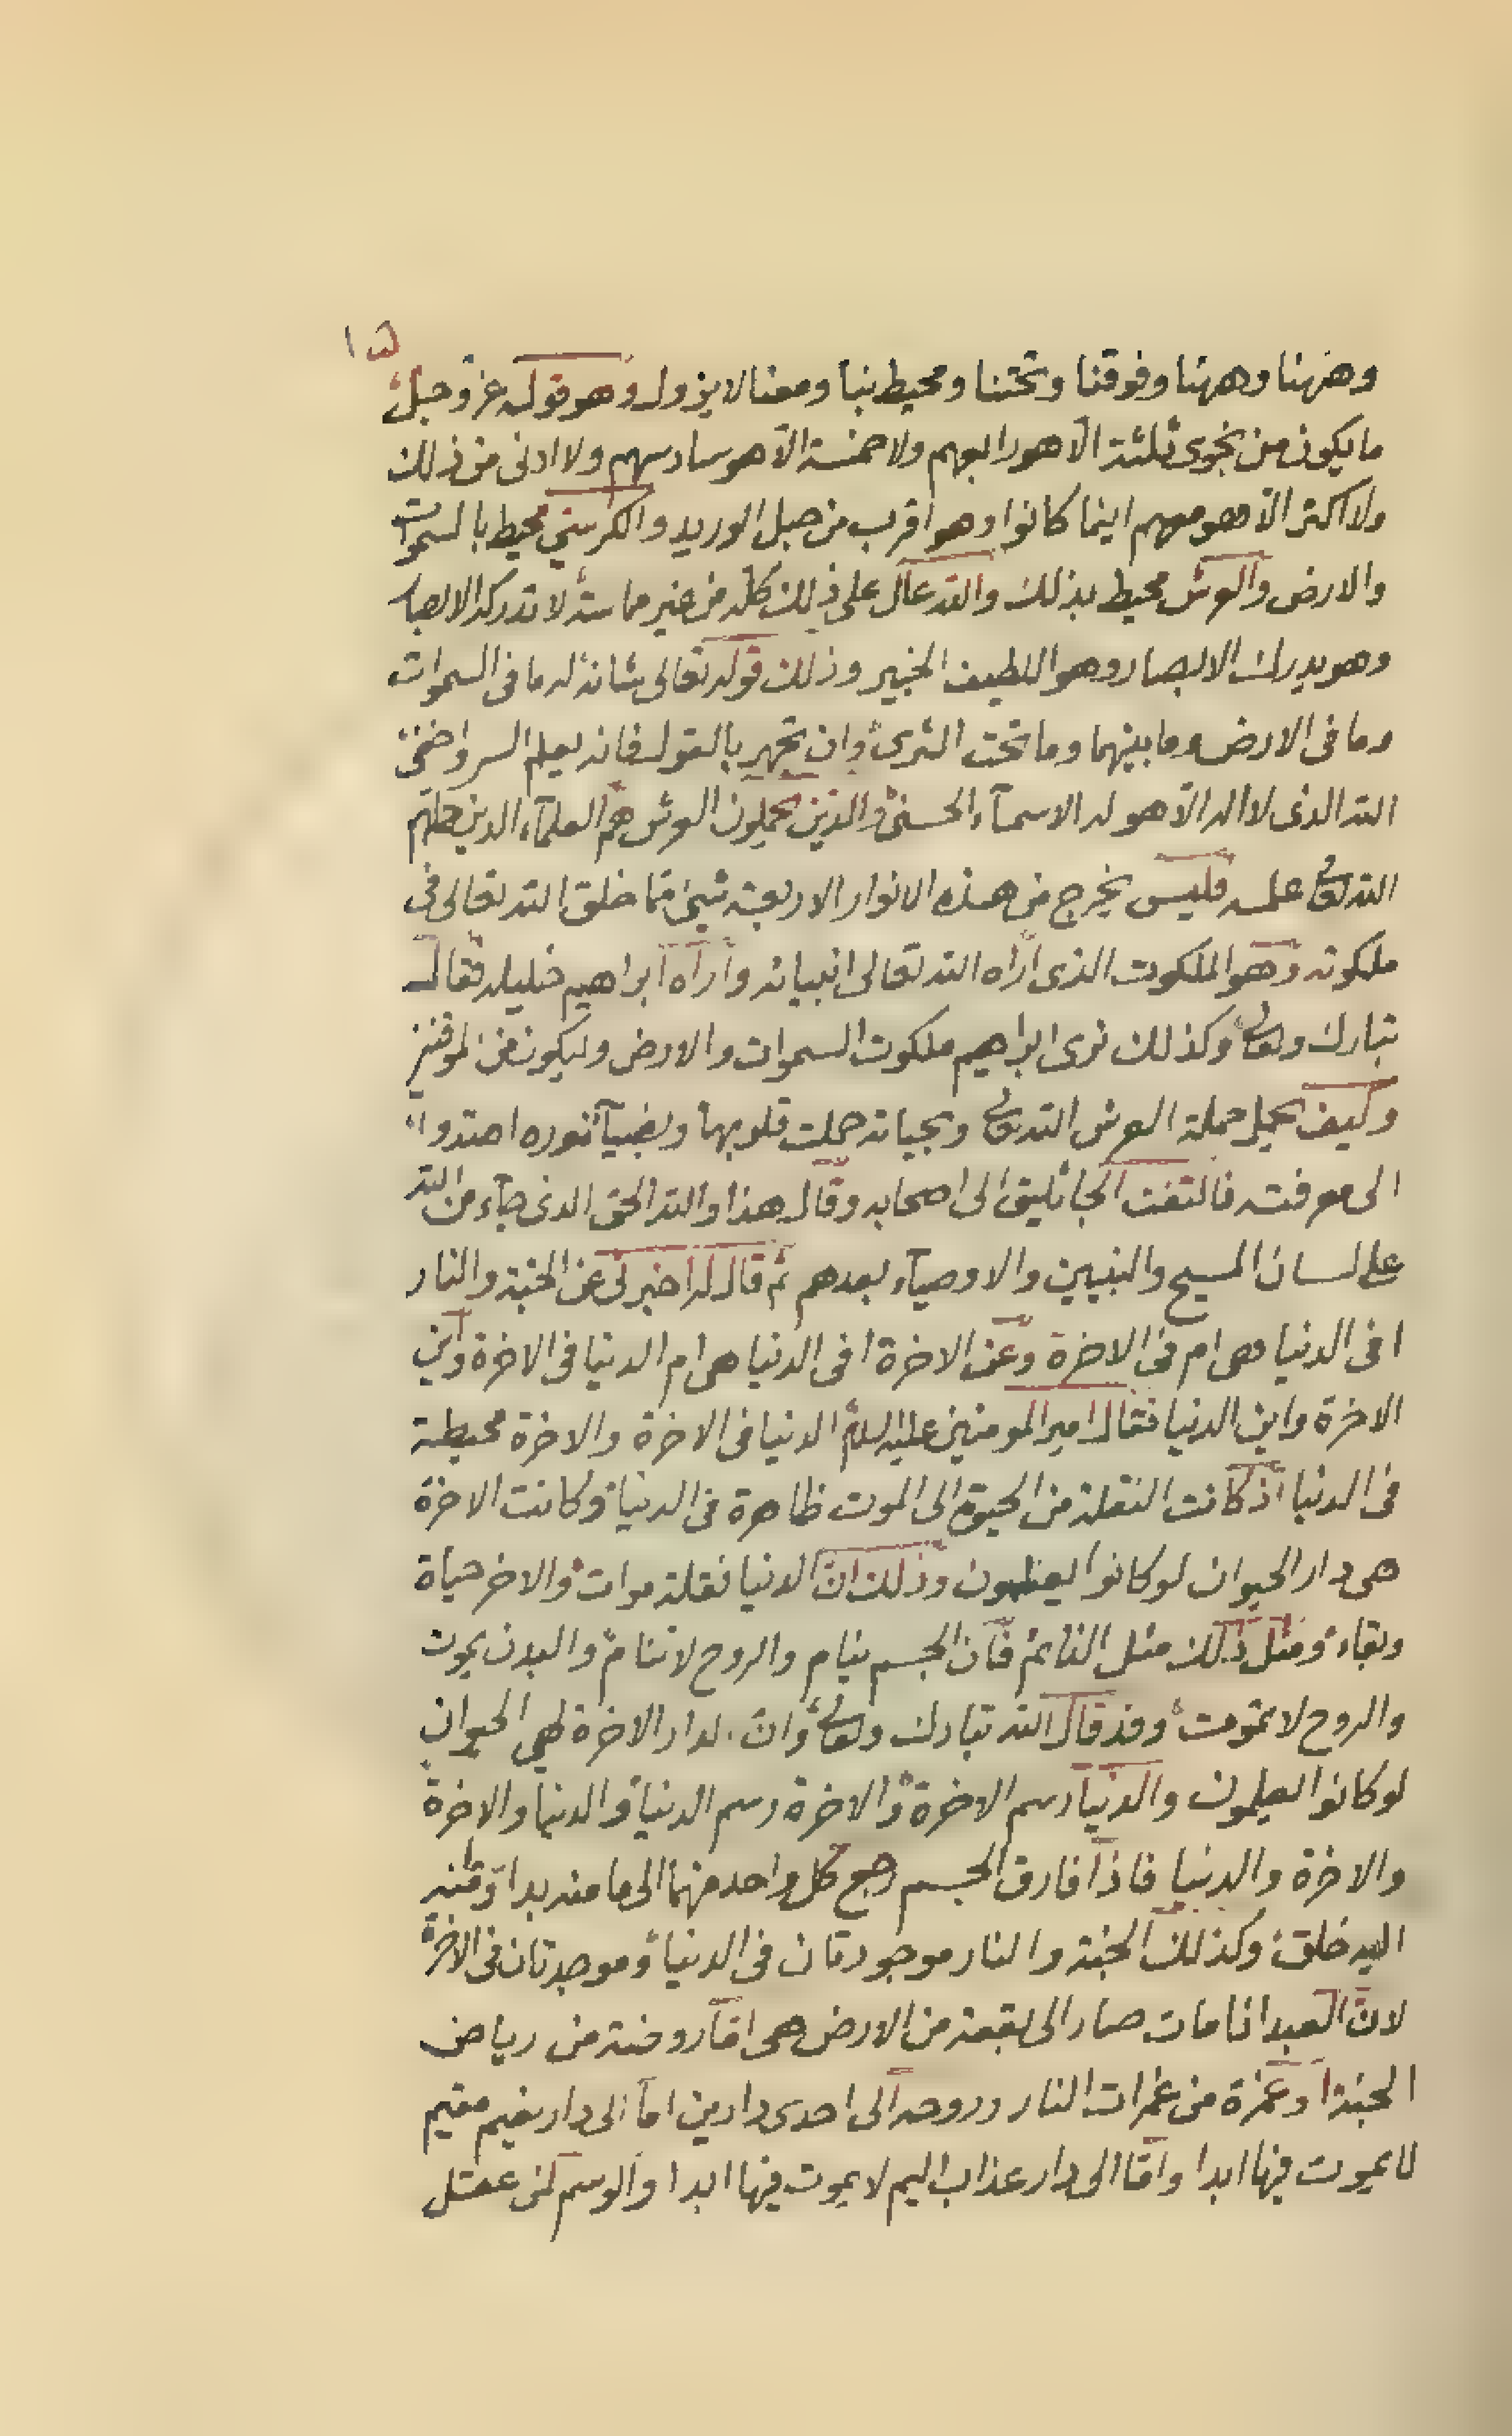 وههنا وههنا وفوقنا وتحتنا ومحيط بنا ومعنا لا يزول وهو قوله عز وجل
ما يكون من نجوى ثلثة الا هو رابعهم ولا خمسة الا هو سادسهم ولا ادنى من ذلك
ولا اكثر الا هو معهم اينما كانوا وهو اقرب من حبل الوريد والكرسي محيط بالسموات
والارض والعرش محيط بذلك والله عال على ذلك كله من غير مماسة لا تدركه الابصار
وهو يدرك الابصار وهو اللطيف الخبير وذلك قوله تعالى شانه له ما في السموات
وما في الارض وما بينهما وما تحت الثرى وان تجهر بالقول فانه يعلم السر واخفى
الله الذى لا اله الا هو له الاسمآء الحسنى والذين يحملون العرش هم العلمآء الذين حملهم
الله تعالى علمه فليس يخرج من هذه الانوار الاربعة شيئ مما خلق الله تعالى في
ملكوته وهو الملكوت الذى اراه الله تعالى انبيائه واراه ابراهيم خليله فقال
تبارك وتعالى وكذلك نرى ابراهيم ملكوت السموات والارض وليكون من الموقنين
وكيف يحمل حملة العرش الله تعالى وبحياته حملت قلوبها وبضيآء نوره اهتدوا
الى معرفته فالتفت الجاثليق الى اصحابه وقال هذا والله الحق الذى جآء من الله
على لسان المسيح والنبيين والاوصيآء بعدهم ثم قال له اخبرنى عن الجنة والنار
افى الدنيا هى ام فى الاخرة وعن الاخرة افى الدنيا هى ام الدنيا فى الاخرة واين
الاخرة واين الدنيا فقال امير المومنين عليه السلم الدنيا فى الاخرة والاخرة محيطة
فى الدنيا اذ كانت النقلة من الحيوة الى الموت ظاهرة فى الدنيا وكانت الاخرة
هى دار الحيوان لو كانوا يعلمون وذلك ان الدنيا نقلة موات والاخر حياة
وبقاء ومثل ذلك مثل النائم فان الجسم ينام والروح لا تنام والبدن يموت
والروح لا يموت وقد قال الله تبارك وتعالى وان لدار الاخرة لهى الحيوان
لو كانوا يعلمون والدنيا رسم الاخرة والاخرة رسم الدنيا والدنيا والاخرة
والاخرة والدنيا فاذا فارق الجسم رجع كل واحد منهما الى ما منه بدا
اليه خلق وكذلك الجنة والنار موجودتان فى الدنيا وموجودتان فى الاخرة
لان العبد اذا مات صار الى بقعة من الارض هى اما روضة من رياض
الجنة او غمرة من غمرات النار وروحه الى احدى دارين اما الى دار نعيم مقيم
لا يموت فيها ابدا واما الى دار عذاب اليم لا يموت فيها ابدا والرسم لمن عقل